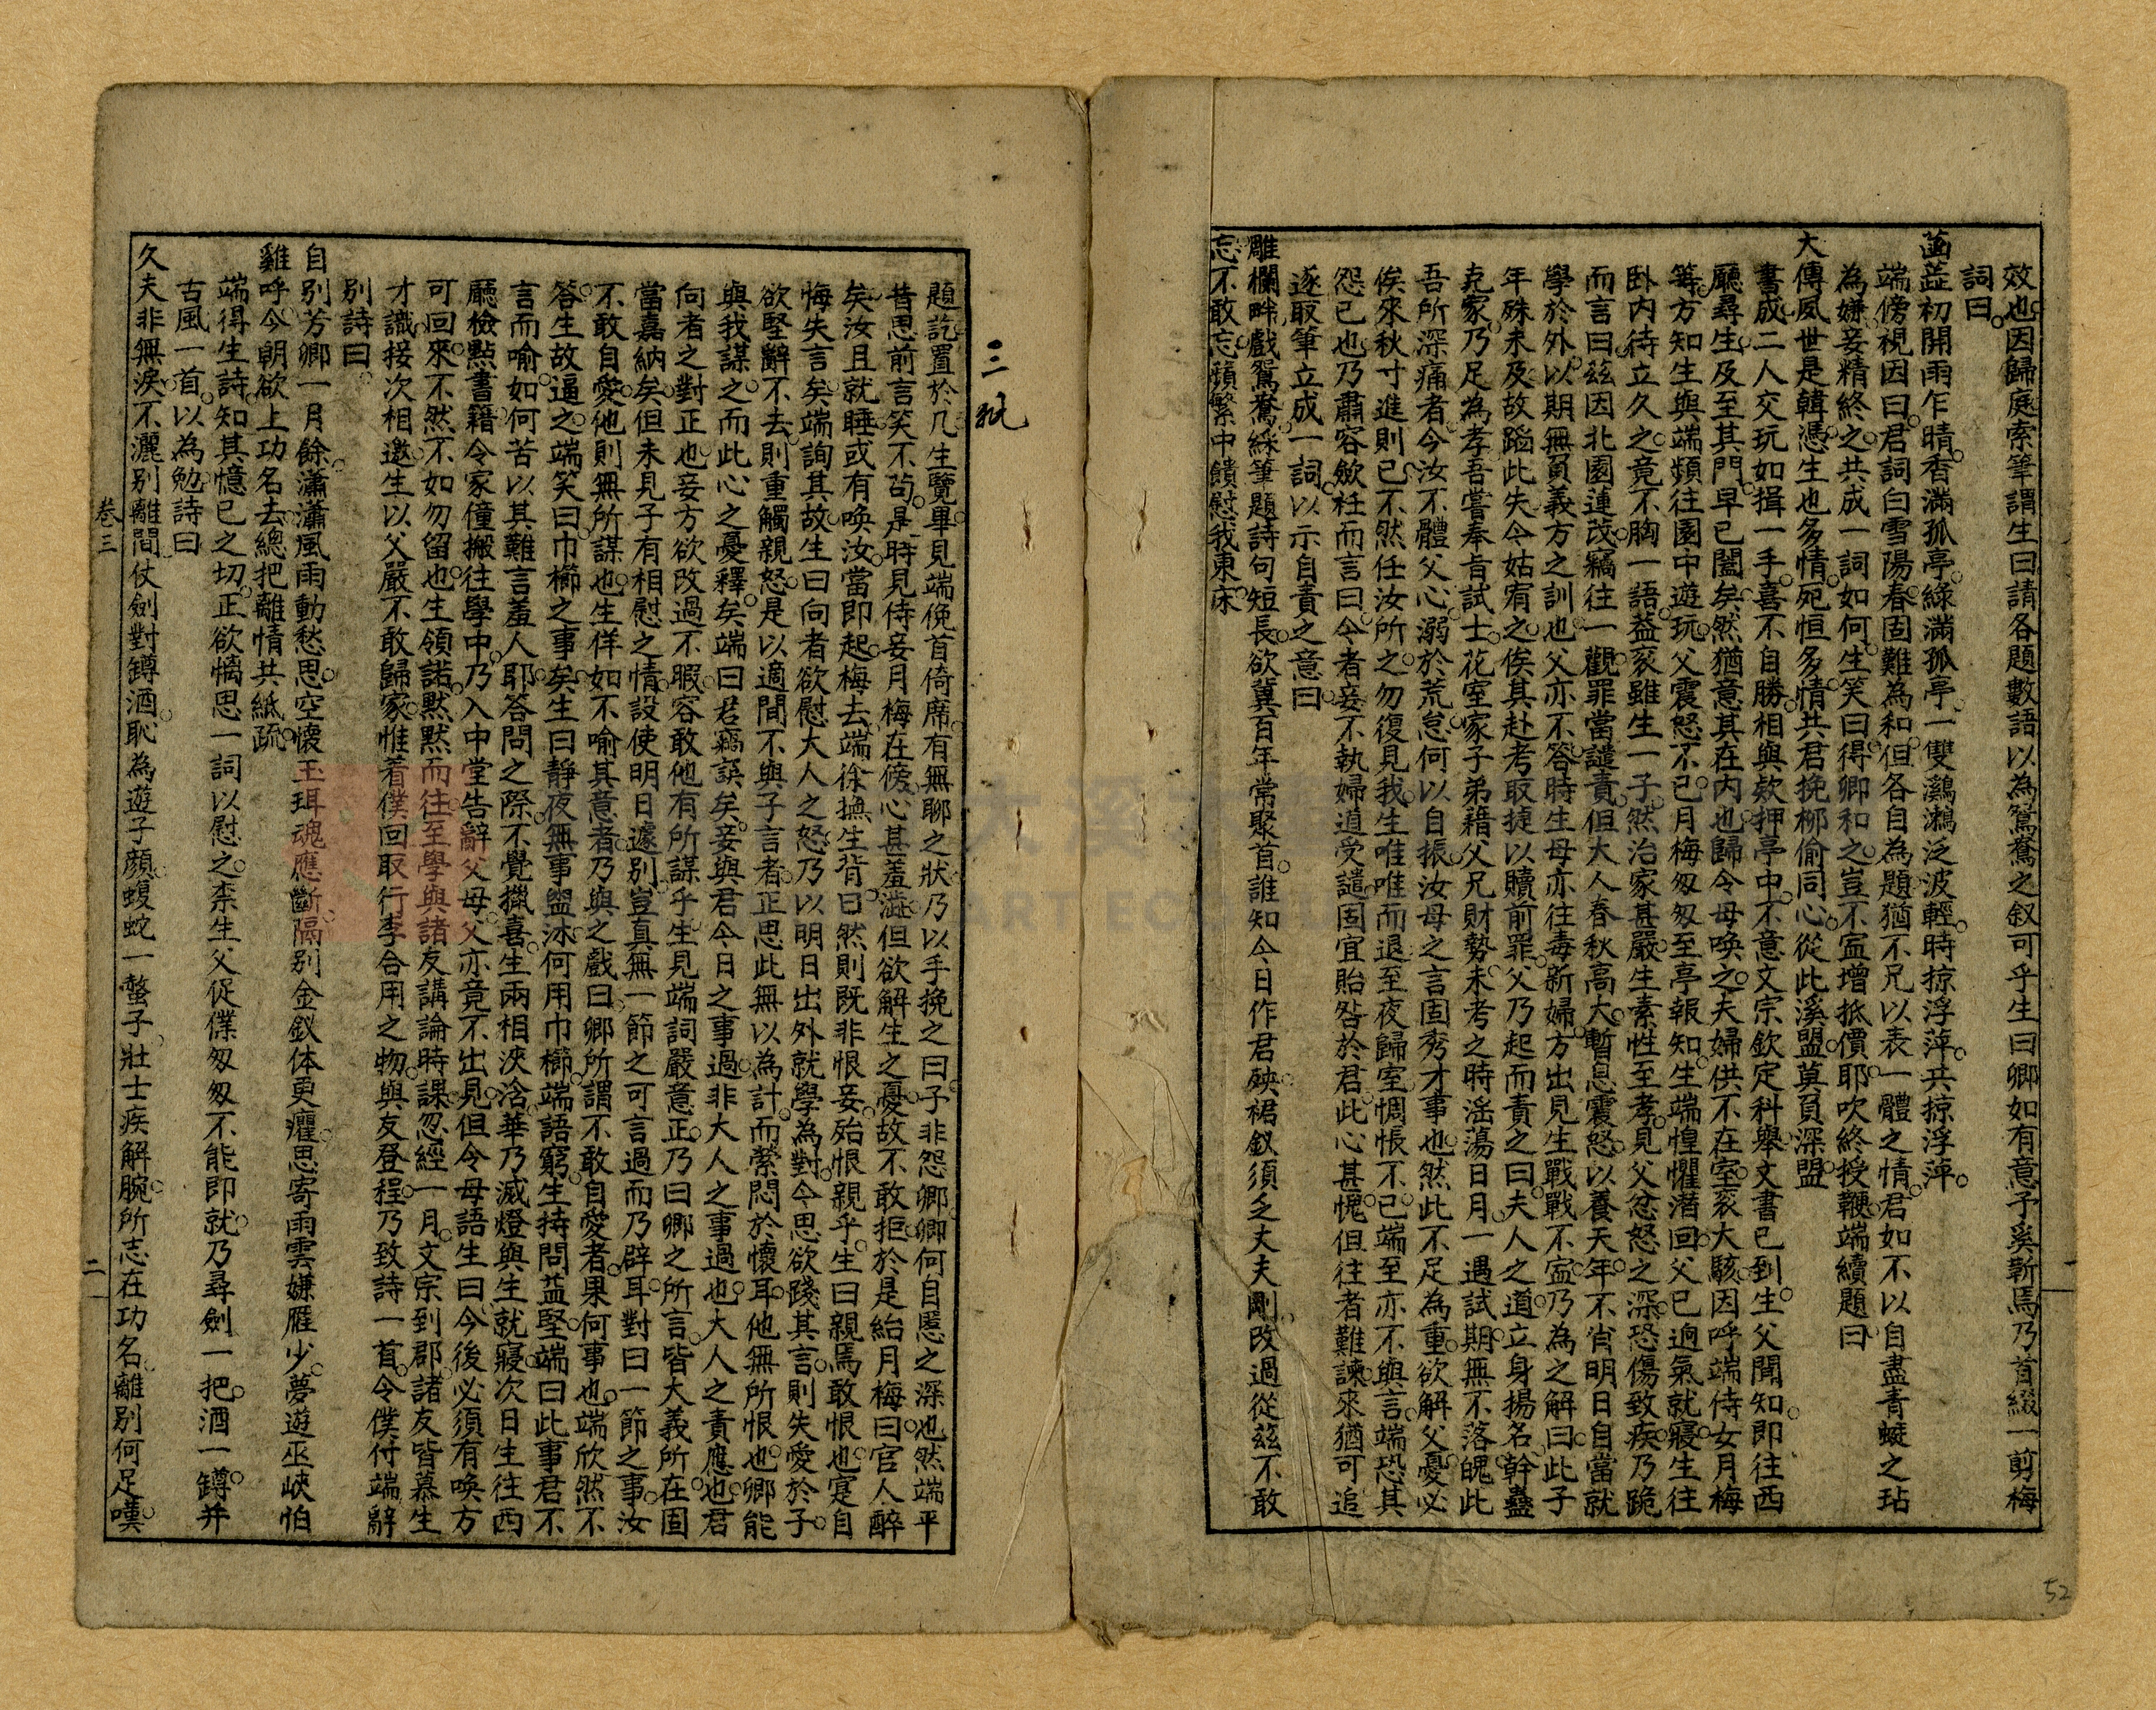 效也因歸庭索筆謂生曰請各題數語以為鴛鴦之叙可乎生曰卿如有意予奚靳焉乃首綴一剪梅
詞曰
菡萏初開雨乍晴香滿孤亭綠滿孤亭一雙鸂鶒泛波輕時掠浮萍共掠浮萍
端傍視因曰君詞白雪陽春固難為和但各自為題猶不見以表一體之情君如不以自盡青蠅之玷
為嫌妾精終之共成一詞如何生笑曰得卿和之豈不寔增抵價耶吹終授鞭端續題曰
大傳風世是韓憑生也多情死恒多情共君挽柳偷同心從此溪盟莫負深盟
書成二人交玩如揖一手喜不自勝相與欵押亭中不意文宗欽定科舉文書已到生父聞知即往西
廳尋生及至其門早已闔矣然猶意其在内也歸令母喚之夫婦供不在室衮大駭因呼端侍女月梅
等方知生與端頻往園中遊玩父震怒不已月梅匆匆至亭報知生端惶懼潛回父已逈氣就寢生往
卧内待立久之竟不胸一語益衮雖生一子然治家甚嚴生素性至孝見父忿怒之深恐傷致疾乃跪
而言曰茲因北園連茂竊往一觀罪當譴責但大人春秋高大暫息震怒以養天年不肖明日自當就
學於外以期無負義方之訓也父亦不答時生母亦往毒新婦方出見生戰戰不寔乃為之解曰此子
年殊未及故蹈此失令姑宥之俟其赴考取捷以贖前罪父乃起而責之曰夫人之道立身揚名幹蠱
克家乃足為孝吾嘗奉旨試士花室家子弟藉父兄財勢未考之時淫蕩日月一遇試期無不落魄此
吾所深痛者今汝不體父心溺於荒怠何以自振汝母之言固秀才事也然此不足為重欲解父憂必
俟來秋寸進則已不然任汝所之勿復見我生唯唯而退至夜歸室惆悵不已端至亦不與言端恐其
怨已也乃肅容歛衽而言曰今者妾不執婦道受譴固宜貽咎於君此心甚愧但往者難諫來猶可追
逐取筆立成一詞以示自責之意曰
雕欄畔戲鴛鴦綵筆題詩句短長欲冀百年常聚首誰知今日作君殃裙釵須乏丈夫剛改過從茲不敢
忘不敢忘蘋蘩中饋慰我東床
三紙
題訖置於几生覽畢見端俛首倚席有無聊之狀乃以手挽之曰子非怨卿卿何自慝之深也然端平
昔思前言笑不苟是時見侍妾月梅在傍心甚羞澁但欲解生之憂故不敢拒於是紿月梅曰官人醉
矣汝且就睡或有喚汝當即起梅去端徐撫生背曰然則既非恨妾殆恨親乎生曰親焉敢恨也寔自
悔失言矣端詢其故生曰向者欲慰大人之怒乃以明日出外就學為對今思欲踐其言則失愛於子
欲堅辭不去則重觸親怒是以適間不與子言者正思此無以為計而縈悶於懷耳他無所恨也卿能
與我謀之而此心之憂釋矣端曰君竊誤矣妾與君今日之事過非大人之事過也大人之責應也君
向者之對正也妾方欲改過不暇容敢他有所謀乎生見端詞嚴意正乃曰卿之所言皆大義所在固
當嘉納矣但未見子有相慰之情設使明日遽别豈真無一節之可言過而乃辟耳對曰一節之事汝
不敢自愛他則無所謀也生佯如不喻其意者乃與之戲曰卿所謂不敢自愛者果何事也端欣然不
答生故逼之端笑曰巾櫛之事矣生曰靜夜無事盥沐何用巾櫛端語窮生持問益堅端曰此事君不
言而喻如何苦以其難言羞人耶答問之際不覺攧喜生兩相浹洽華乃滅燈與生就寢次日生往西
廳檢點書籍令家僮搬往學中乃入中堂告辭父母父亦竟不出見但令母語生曰今後必須有喚方
可回來不然不如勿留也生領諾默默而往至學與諸友講論時課忽經一月文宗到郡諸友皆慕生
才識接次相邀生以父嚴不敢歸家惟着僕回取行李合用之物與友登程乃致詩一首令僕付端辭
别詩曰
自别芳卿一月餘瀟瀟風雨動愁思空懷玉珥魂應斷隔别金釵体更癯思寄雨雲嫌雁少夢遊巫峽怕
雞呼今朝欲上功名去總把離情共紙疏
端得生詩知其憶已之切正欲搆思一詞以慰之柰生父促僕匆匆不能即就乃尋劍一把酒一罇并
古風一首以為勉詩曰
久夫非無淚不灑别離間仗劍對罇酒恥為遊子顏蝮蛇一螫子壯士疾解腕所志在功名離别何足嘆
卷三
二
一
52